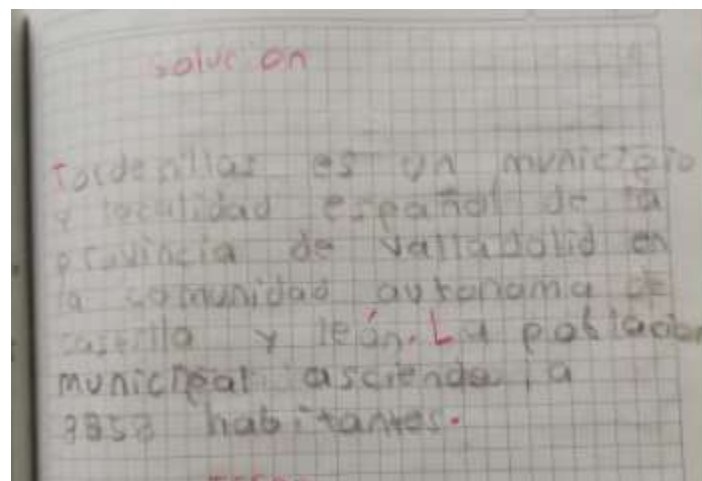 solucion
Tordesillas es un municipio
y localidad español de la
provincia de valladolid en
la comunidad autonoma de
castilla y león. La poblacion
municipal asciende a
habitantes.